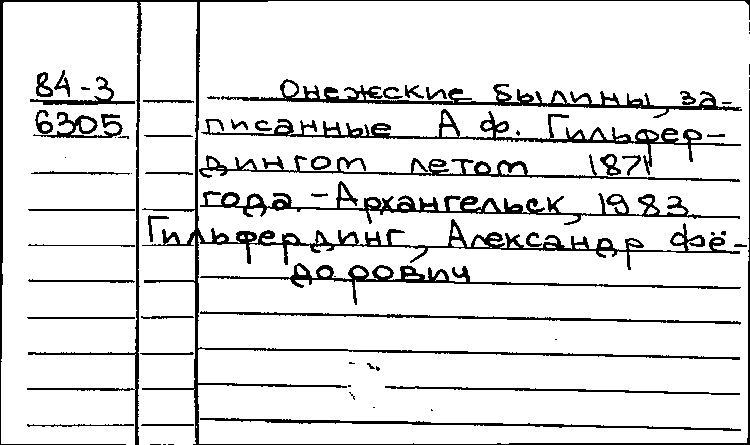 84-3 Онежские былины, за-
6305 писанные А.Ф. Гильфер-
дингом летом 1871
года. - Архангельск, 1983
Гильфердинг, Александр Фё-
дорович